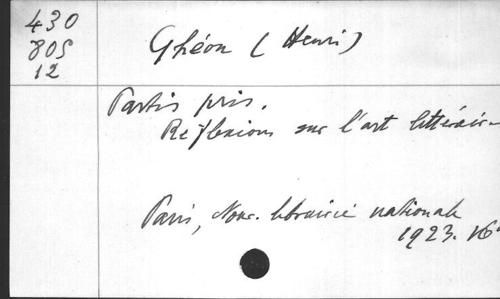 430
805
12
Ghéon (Henri)
Partis pris.
Réflexions sur l'art littéraire
Paris, Nouv. librairie nationale
1923. 16°